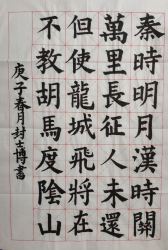 秦時明月漢時關
萬里長征人未還
但使龍城飛將在
不教胡馬度陰山
庚子春月封志博書